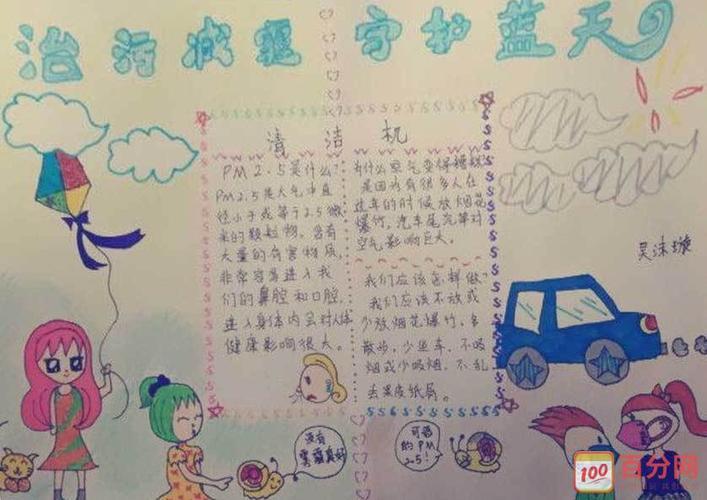 治污减霾 守护蓝天
清洁机
PM2.5是什么?
PM2.5是大气中直
径小于或等于2.5微
米的颗粒物,含有
大量的有害物质,
非常容易进入我
们的鼻腔和口腔,
进入身体内会对人体
健康影响很大。
为什么空气变得糟糕?
是因为有很多人在
过年的时候放烟花
爆竹,汽车尾气等对
空气影响巨大。
我们应该怎样做?
我们应该不放或
少放烟花爆竹,多
散步,少坐车,不吸
烟或少吸烟,不乱
丢果皮纸屑。
吴沫璇
没有
雾霾真好
可恶
的PM
2.5!
100
百分网